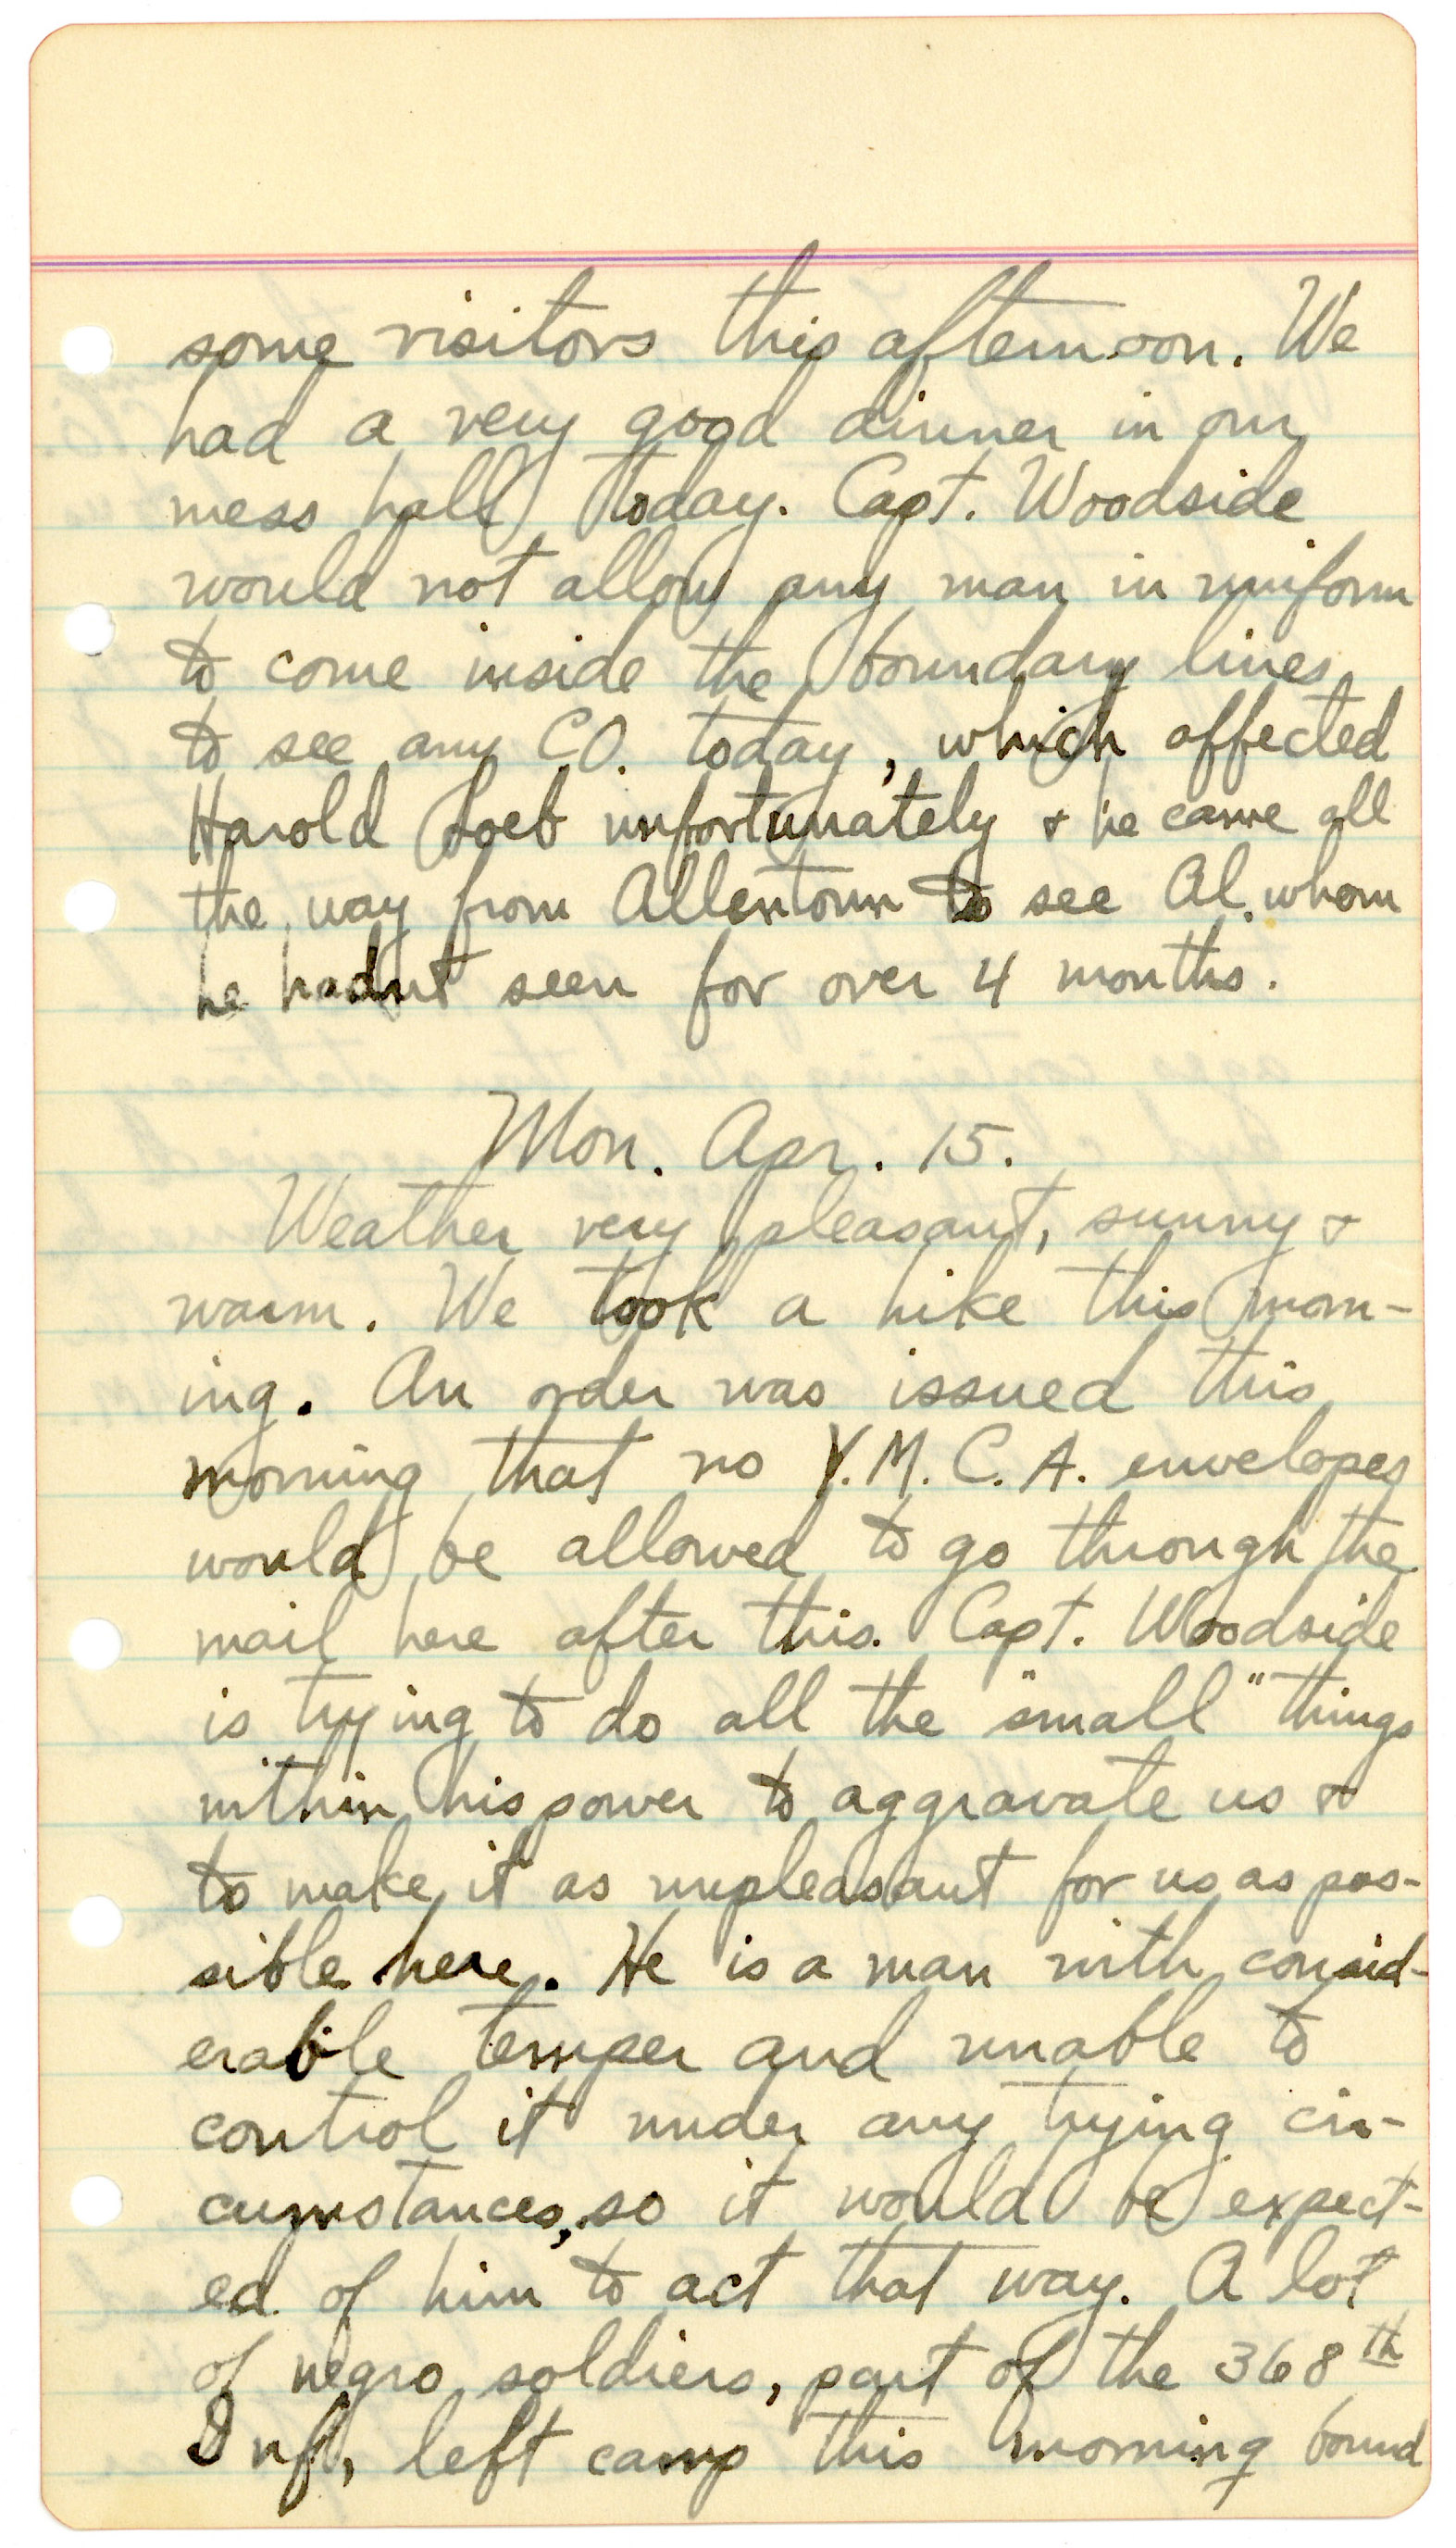 some visitors this afternoon. We
had a very good dinner in our
mess hall today. Capt. Woodside
would not allow any man in uniform
to come inside the boundary lines
to see any C.O. today, which affected
Harold Loeb unfortunately & he came all
the way from Allentown to see Al. whom
he hadnt seen for over 4 months.
Mon. Apr. 15.
Weather very pleasant, sunny &
warm. We took a hike this morn-
ing. An order was issued this
morning that no Y.M.C.A. envelopes
would be allowed to go through the
mail here after this. Capt. Woodside
is trying to do all the "small" things
within his power to aggravate us &
to make it as unpleasant for us as pos-
sible here. He is a man with consid-
erable temper and unable to
control it under any trying cir-
cumstances, so it would be expect-
ed of him to act that way. A lot
of negro soldiers, part of the 368th
Inf., left camp this morning bound